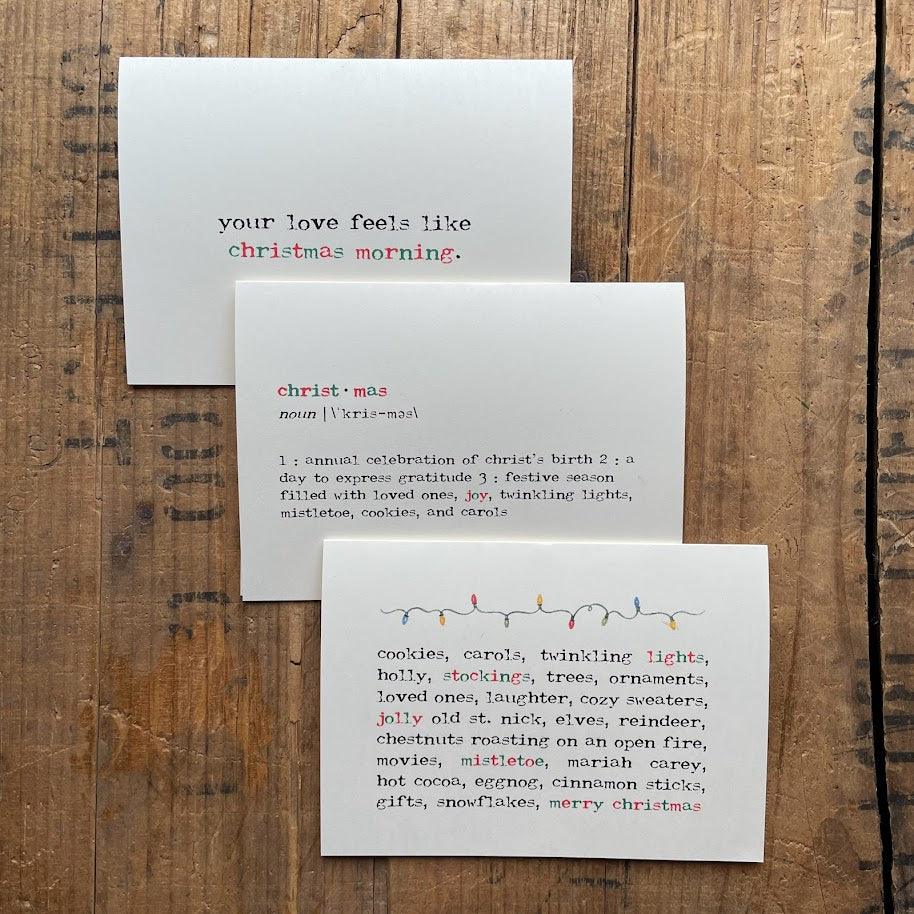 your love feels like
christmas morning.
christ·mas
noun | \ˈkris-məs\
1 : annual celebration of christ's birth 2 : a
day to express gratitude 3 : festive season
filled with loved ones, joy, twinkling lights,
mistletoe, cookies, and carols
cookies, carols, twinkling lights,
holly, stockings, trees, ornaments,
loved ones, laughter, cozy sweaters,
jolly old st. nick, elves, reindeer,
chestnuts roasting on an open fire,
movies, mistletoe, mariah carey,
hot cocoa, eggnog, cinnamon sticks,
gifts, snowflakes, merry christmas